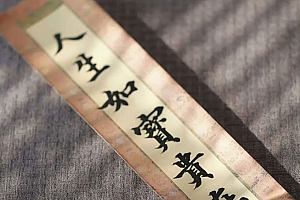 人生如寶貴